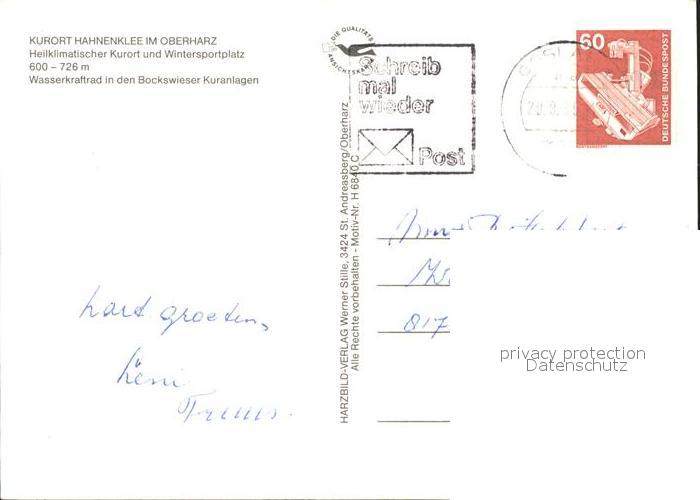 KURORT HAHNENKLEE IM OBERHARZ
Heilklimatischer Kurort und Wintersportplatz
600 – 726 m
Wasserkraftrad in den Bockswieser Kuranlagen
DIE QUALITÄTS
ANSICHTSKARTE
Schreib
mal
wieder
Post
60
DEUTSCHE BUNDESPOST
HARZBILD-VERLAG Werner Stille, 3424 St. Andreasberg/Oberharz
Alle Rechte vorbehalten - Motiv-Nr. H 6840 C
hart groeten,
Leni
817
privacy protection
Datenschutz